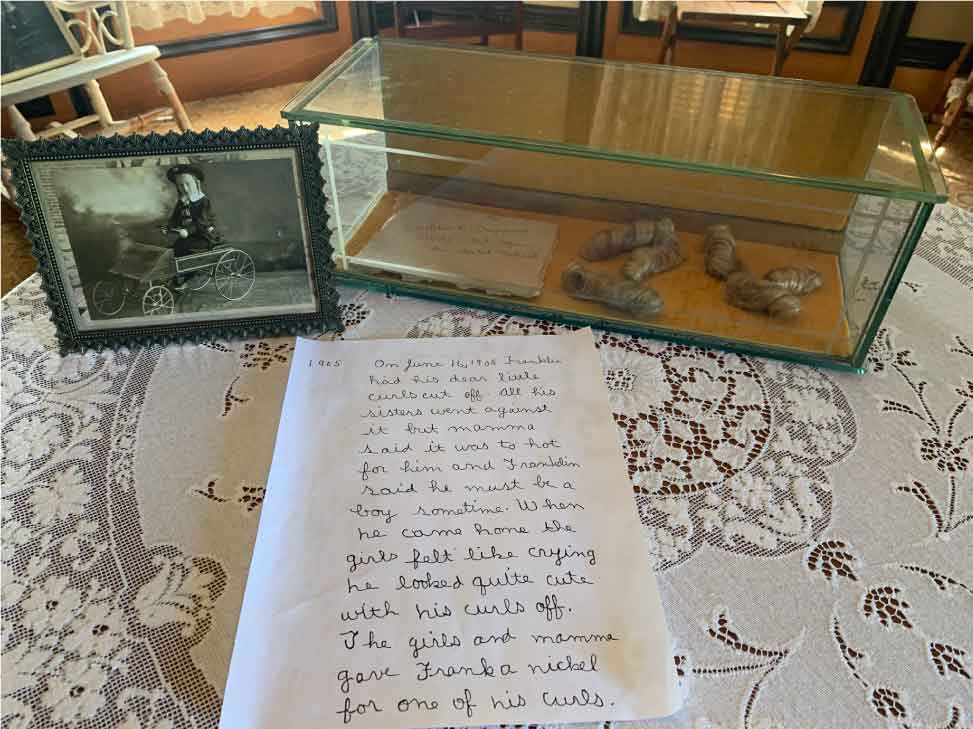 1905 On June 16, 1905 Franklin
had his dear little
curls cut off. All his
sisters went against
it but mamma
said it was to hot
for him and Franklin
said he must be a
boy sometime. When
he came home the
girls felt like crying
he looked quite cute
with his curls off.
The girls and mamma
gave Frank a nickel
for one of his curls.